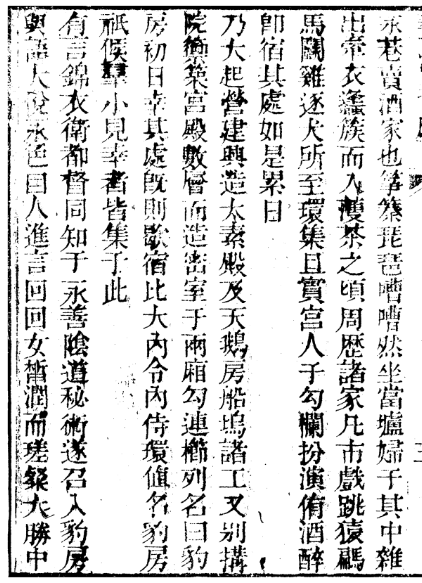 永巷賣酒家也箏篥琵琶嘈嘈然坐當壚婦于其中雜
出牽衣蠭簇而入濩茶之頃周歷諸家凡市戲跳猿騙
馬鬭雞逐犬所至環集且實宮人于勾欄扮演侑酒醉
卽宿其處如是累日
乃大起營建興造太素殿及天鵝房船塢諸工又別搆
院籞築宮殿數層而造密室于兩廂勾連櫛列名曰豹
房初日幸其處旣則歇宿比大內令內侍環値名豹房
祇候羣小見幸者皆集于此
有言錦衣衛都督同知于永善陰道秘術遂召入豹房
與語大說永色目人進言回回女晳潤而瑳粲大勝中